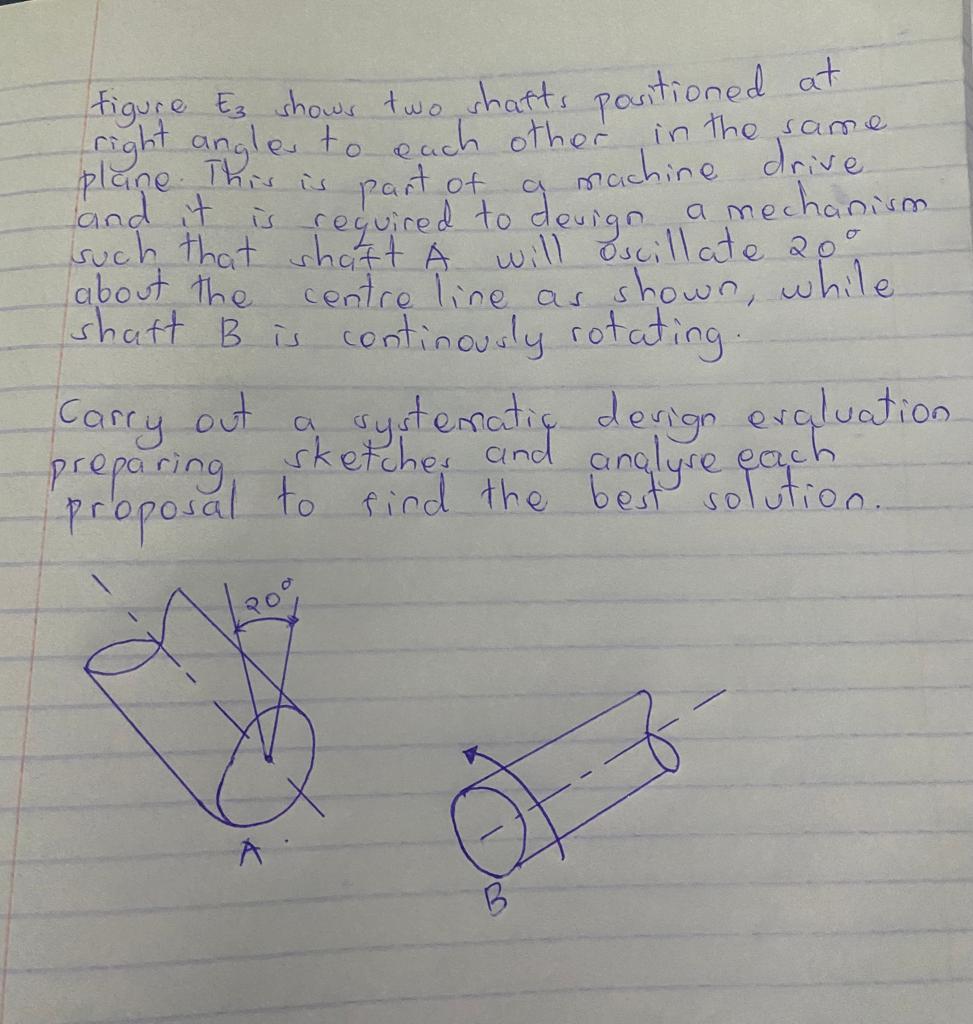 Figure E3 shows two shafts positioned at
right angles to each other in the same
plane. This is part of a machine drive
and it is required to design a mechanism
such that shaft A will oscillate 20°
about the centre line as shown, while
shaft B is continously rotating.
Carry out a systematic design evaluation
preparing sketches and analyse each
proposal to find the best solution.
20°
A
B